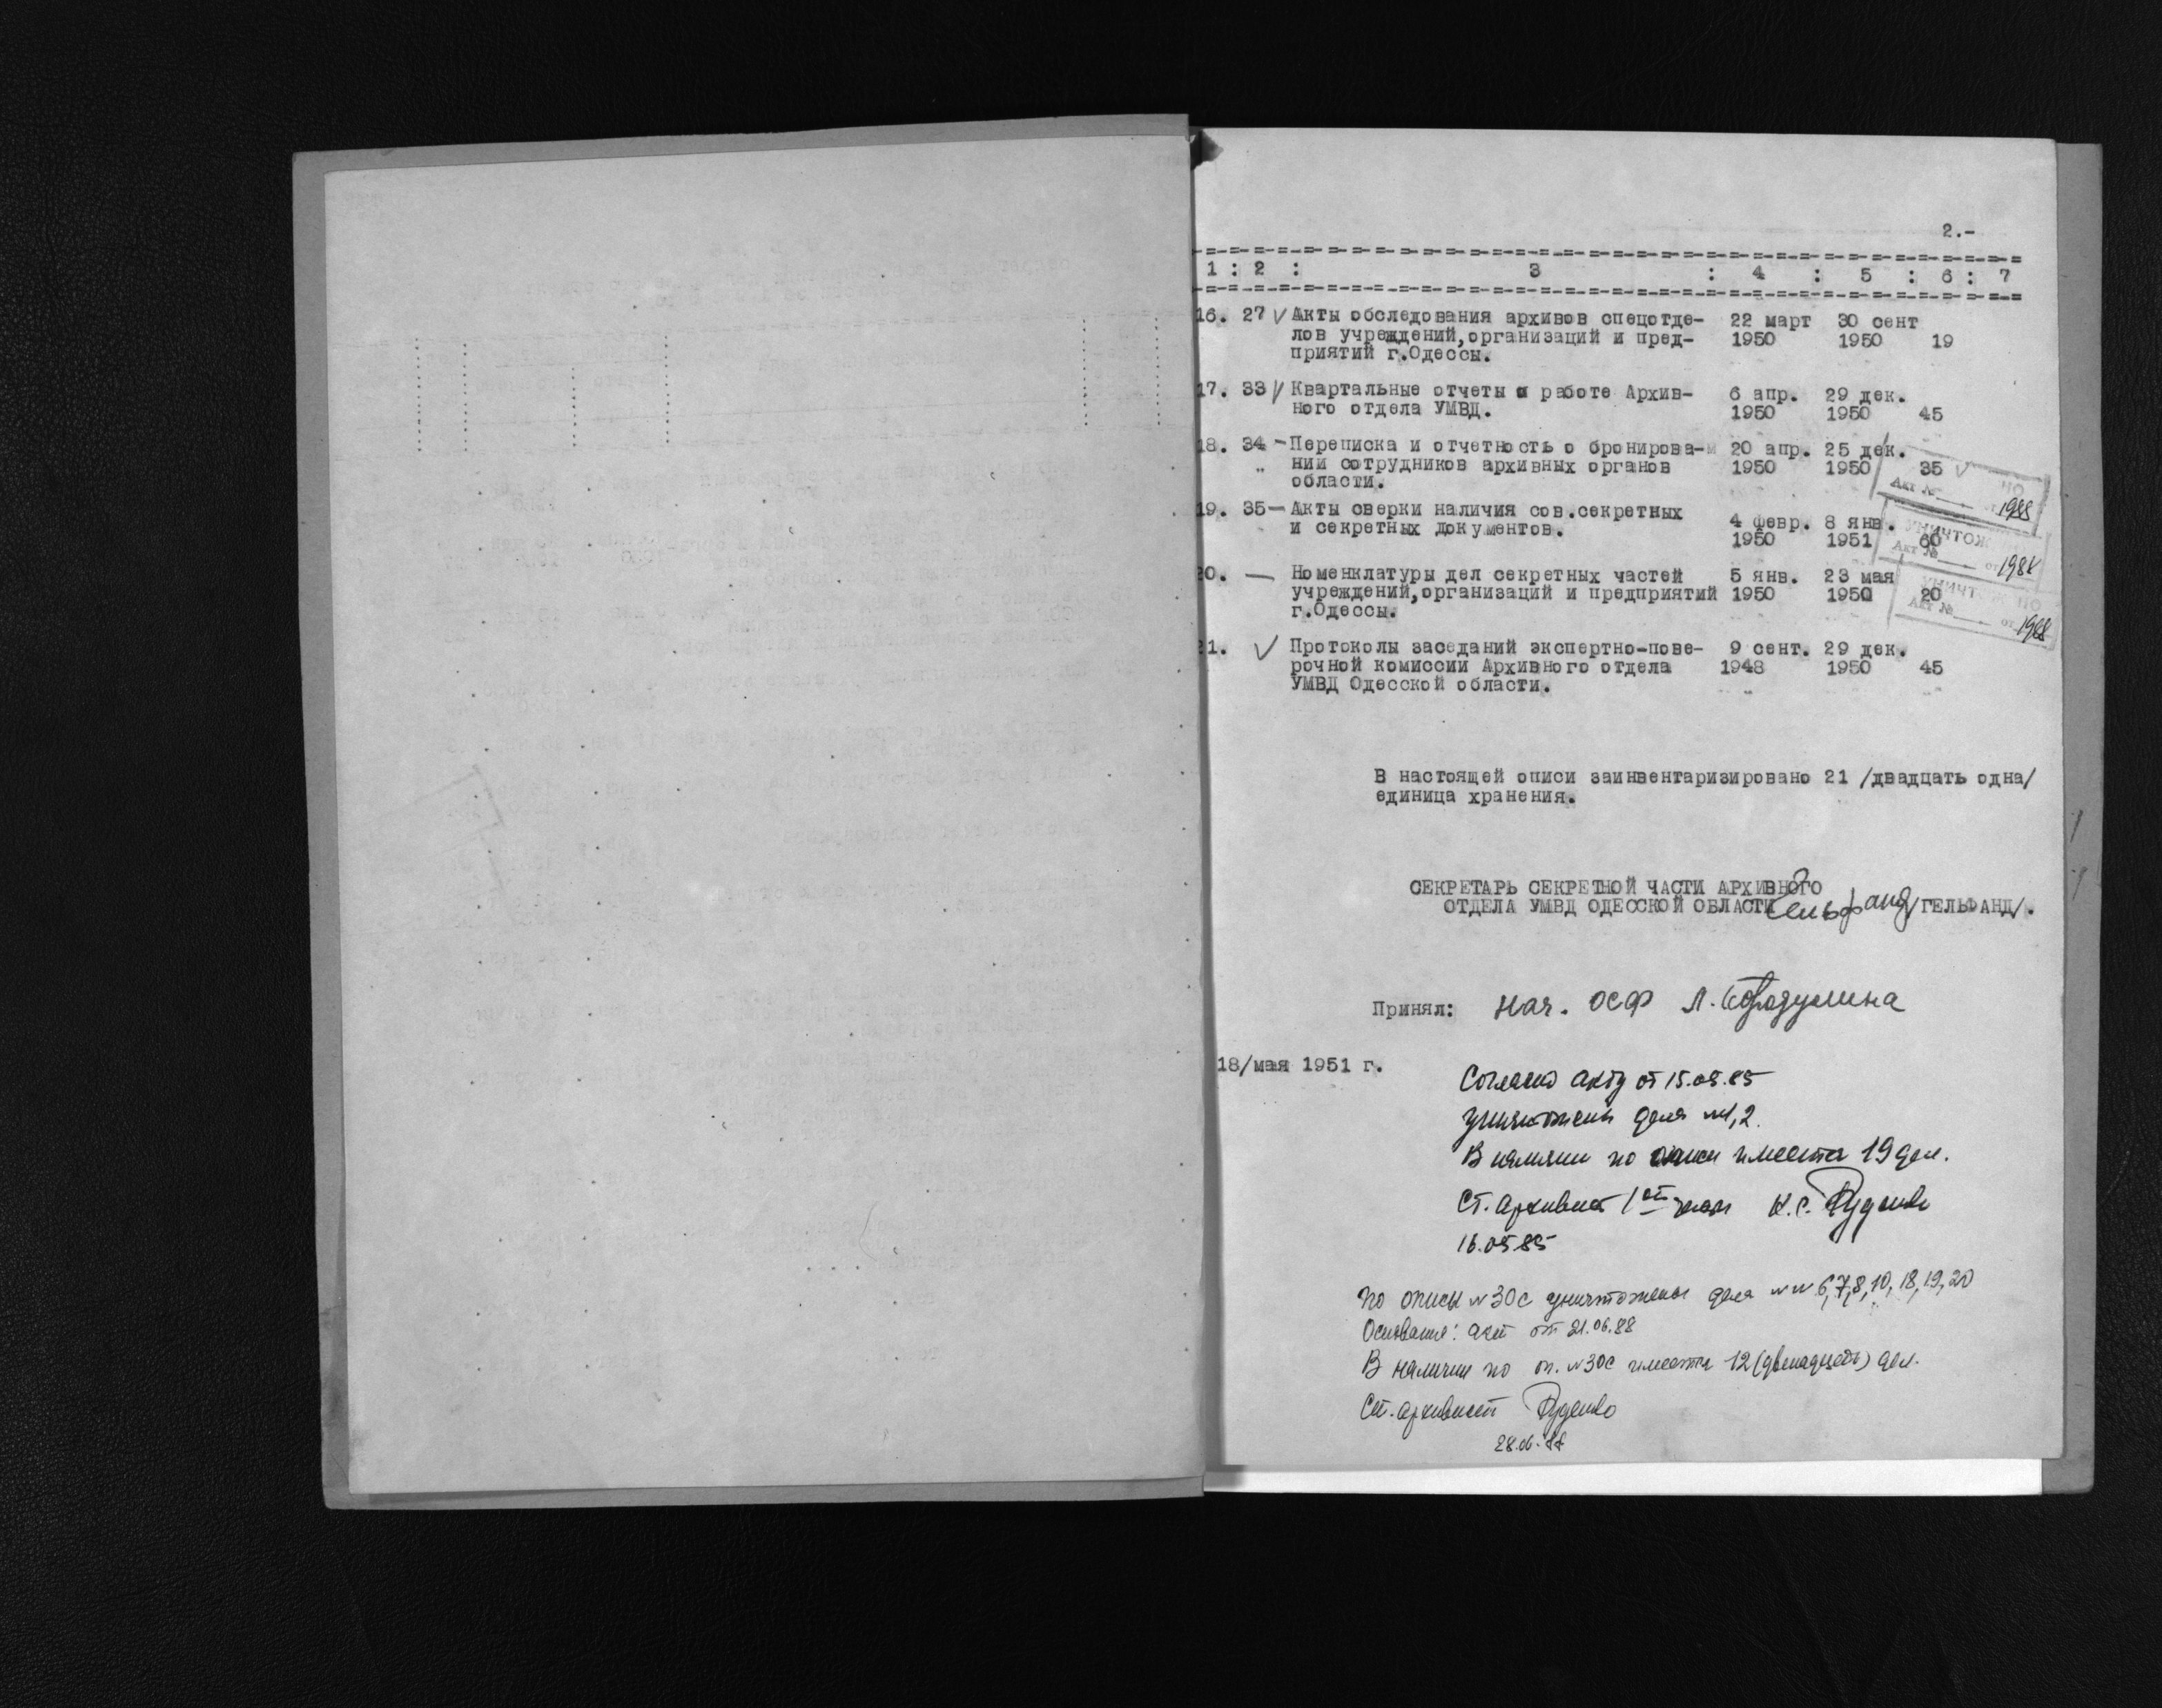 2.-
1 : 2 : 3 : 4 : 5 : 6 : 7
16. 27 √ Акты обследования архивов спецотде- 22 март 30 сент
лов учреждений,организаций и пред- 1950 1950 19
приятий г.Одессы.
17. 33 √ Квартальные отчеты о работе Архив- 6 апр. 29 дек.
ного отдела УМВД. 1950 1950 45
18. 34 - Переписка и отчетность о бронирова- 20 апр. 25 дек.
нии сотрудников архивных органов 1950 1950 35 √
области.
НО
Акт № 1988
19. 35 - Акты сверки наличия сов.секретных
и секретных документов. 4 февр. 8 янв.
1950 1951 60
УНИЧТОЖ
Акт № от 1988
20. — Номенклатуры дел секретных частей 5 янв. 23 мая
учреждений,организаций и предприятий 1950 1950 20
г.Одессы.
УНИЧТ НО
Акт № от 1988
21. √ Протоколы заседаний экспертно-пове- 9 сент. 29 дек.
рочной комиссии Архивного отдела 1948 1950 45
УМВД Одесской области.
В настоящей описи заинвентаризировано 21 /двадцать одна/
единица хранения.
СЕКРЕТАРЬ СЕКРЕТНОЙ ЧАСТИ АРХИВНОГО
ОТДЕЛА УМВД ОДЕССКОЙ ОБЛАСТИ Гельфанд /ГЕЛЬФАНД/.
Принял: Нач. ОСФ Л. Бородулина
18/мая 1951 г.
Согласно акту от 15.05.85
уничтожены дела №1,2.
В наличии по описи имеется 19 дел.
Ст. архивист 1ой кат К.С. Руденко
16.05.85
По описи №30с уничтожены дела №№ 6,7,8,10,18,19,20
Основание: акт от 21.06.88
В наличии по оп. №30с имеется 12 (двенадцать) дел.
Ст. архивист Руденко
28.06.88